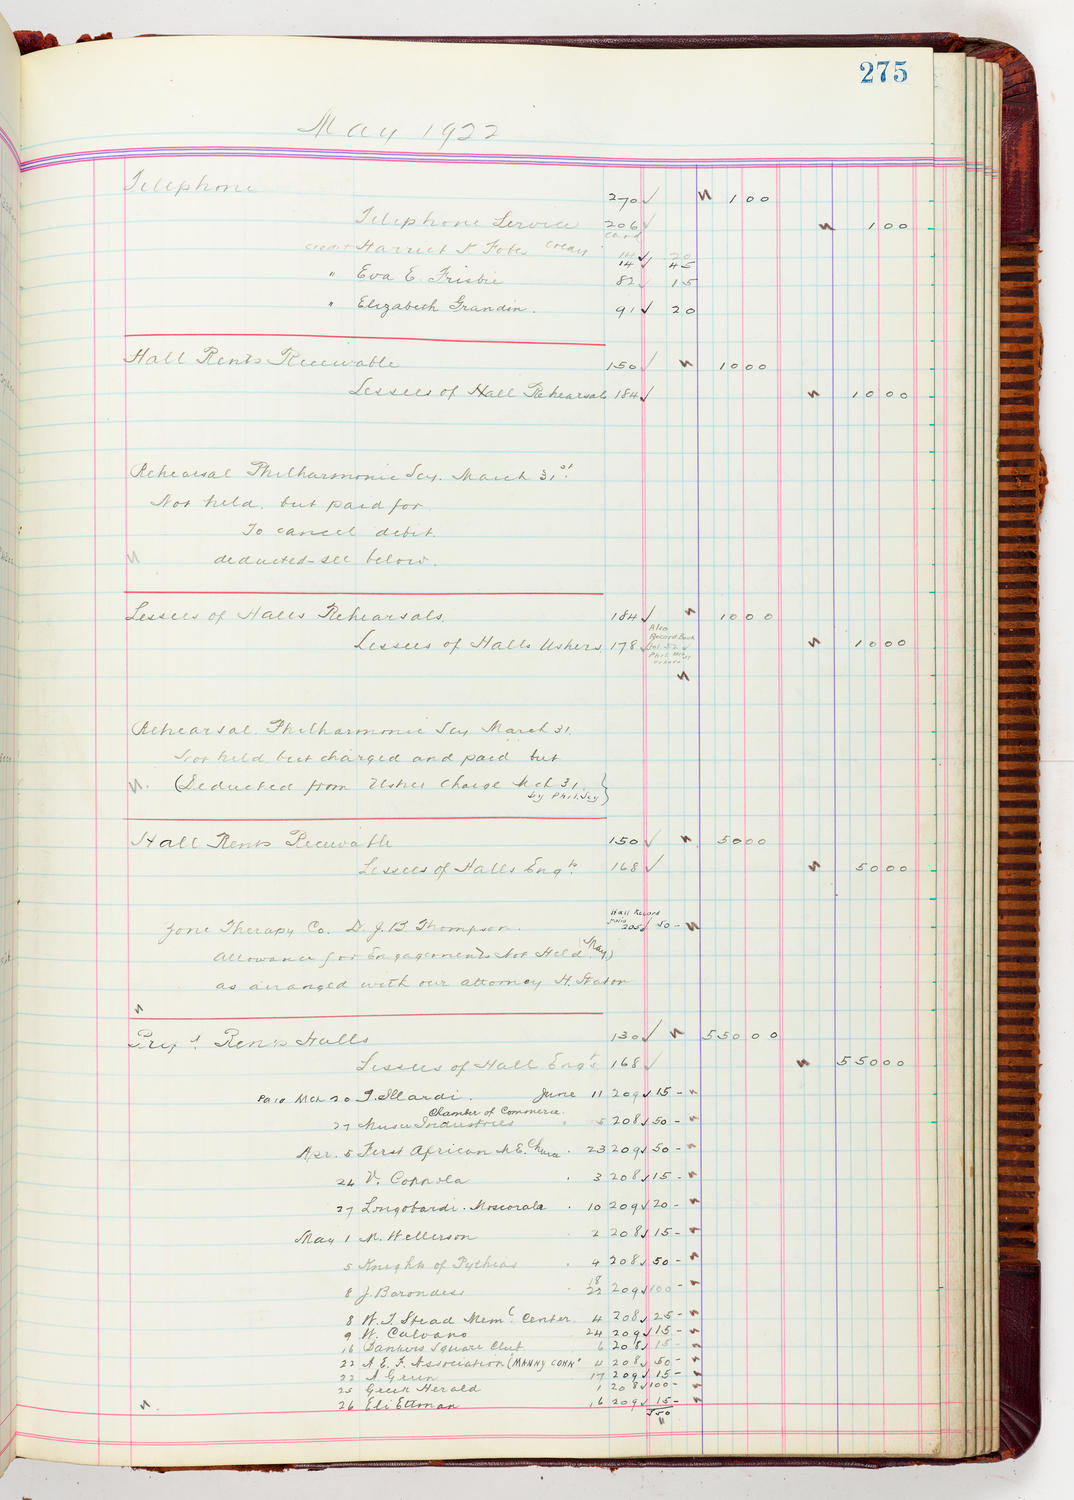 275
May 1922
Telephone 270 ✓ 1 00
Telephone Service 206 ✓ 1 00
card
credit Harriet Fobes 14 ✓ 20
14 ✓ 45
" Eva E. Frisbie 82 ✓ 15
" Elizabeth Grandin. 91 ✓ 20
Hall Rents Receivable 150 ✓ 10 00
Lessees of Hall Rehearsals 184 ✓ 10 00
Rehearsal Philharmonic Scy. March 31st.
Not held, but paid for.
To cancel debit.
deducted - see below.
Lessees of Halls Rehearsals. 184 ✓ 10 00
Lessees of Halls Ushers 178 ✓ 10 00
Also
Record Book
Rehearsal Philharmonic Scy March 31.
Not held but charged and paid but
(Deducted from Usher Charge Mch 31.
by Phil. Scy)
Hall Rents Receivable 150 ✓ 50 00
Lessees of Halls Engts. 168 ✓ 50 00
Hall Record
folio
Zone Therapy Co. Dr. J. B. Thompson. 205 ✓ 50 -
Allowance for Engagements Not Held (May)
as arranged with our attorney H. Staton
Prepd. Rents Halls 130 ✓ 550 00
Lessees of Hall Engts 168 ✓ 550 00
Paid Mch 20 T. Illardi. June 11 209 ✓ 15 -
Chamber of Commerce.
27 Music Industries " 5 208 ✓ 50 -
Apr. 5 First African M.E. Church " 23 209 ✓ 50 -
24 V. Coppola " 3 208 ✓ 15 -
27 Longobardi. Moscorala " 10 209 ✓ 20 -
May 1 M. Wellerson 2 208 ✓ 15 -
5 Knights of Pythias " 4 208 ✓ 50 -
18
8 J. Barondess 22 209 ✓ 100 -
8 W. T. Stead Meml. Center 4 208 ✓ 25 -
9 W. Calvano 24 209 ✓ 15 -
16 Dancers Square Club 6 208 ✓ 15 -
22 A. E. F. Association "MANNY COHN" 4 208 ✓ 50 -
22 A Green 17 209 ✓ 15 -
25 Greek Herald 1 208 ✓ 100 -
26 Eli Ettman 16 209 ✓ 15 -
550